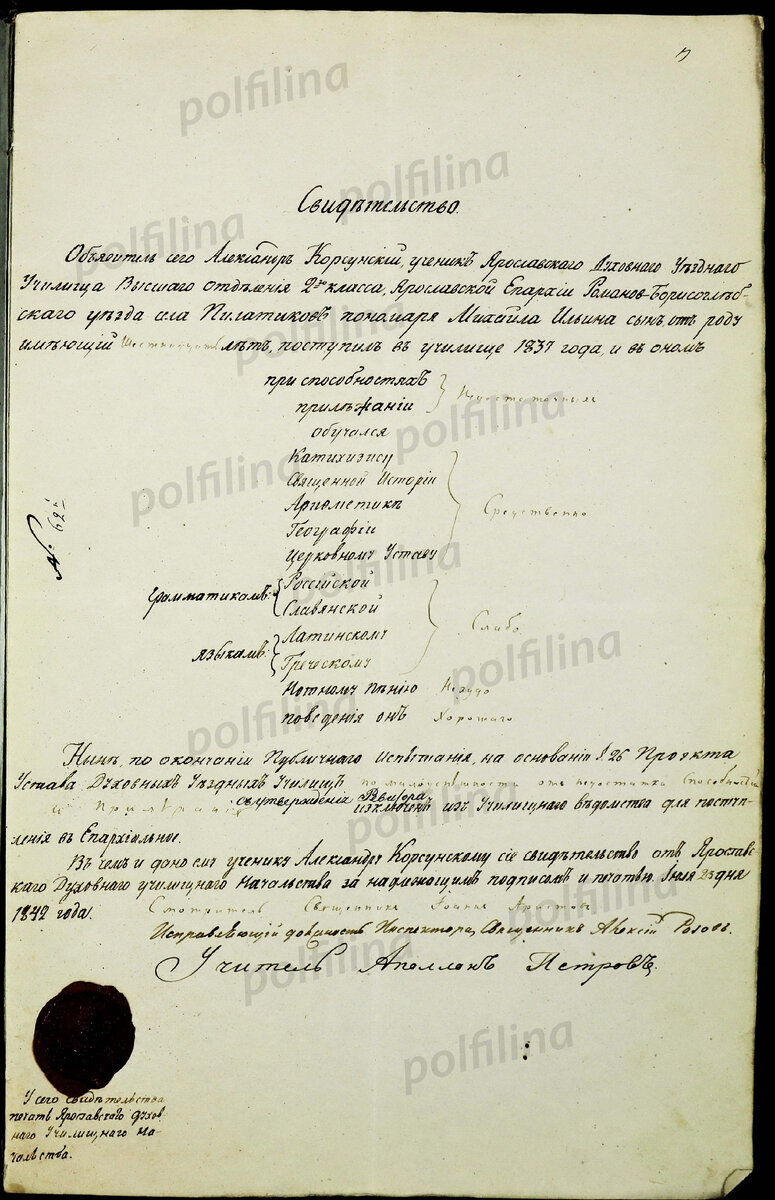 Свидѣтельство.
Объявитель сего Александръ Корсунскій, ученикъ Ярославскаго Духовнаго Уѣзднаго
Училища Высшаго отдѣленія 2го класса, Ярославской Епархіи Романов-Борисоглѣб-
скаго уѣзда села Пилатиковъ пономаря Михаила Ильина сынъ, отъ роду
имѣющій шестнадцать лѣтъ, поступилъ въ училище 1837 года, и въ ономъ
при способностяхъ
прилѣжаніи
обучался
Катихизису
Священной Исторіи
Ариѳметикѣ
Средственно
Географіи
Церковному Уставу
№ 62й
Грамматикамъ:
Россійской
Славянской
Слабо
языкамъ:
Латинскому
Греческому
Нотному пѣнію Нехудо
поведенія онъ Хорошаго
Нынѣ, по окончаніи Публичнаго Испытанія, на основаніи §. 26 Проэкта
Устава Духовныхъ Уѣздныхъ Училищъ по малоуспѣшности отъ недостатка способностей
и прилѣжанія съ утвержденія Ревизора изключенъ изъ Училищнаго вѣдомства для поступ-
ленія въ Епархіальное.
Въ чемъ и дано ему ученику Александру Корсунскому сіе свидѣтельство отъ Ярослав-
скаго Духовнаго училищнаго Начальства за надлежащимъ подписомъ и печатью. Іюля 23 дня
1842 года. Смотритель Священникъ Іоаннъ Аристовъ
Исправляющій должность Инспектора, Священникъ Алексій Розовъ.
Учитель Аполлонъ Петровъ.
У сего свидѣтельства
печать Ярославскаго духов-
наго Училищнаго На-
чальства.
polfilina
polfilina
polfilina
polfilina
polfilina
polfilina
polfilina
polfilina
polfilina
polfilina
polfilina
polfilina